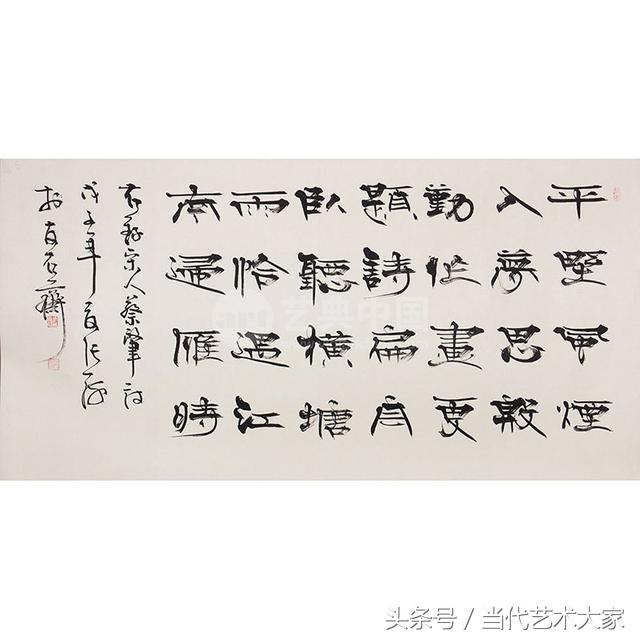 平墅風煙
入夢思殷
勤作畫更
題詩扁舟
臥聽橫塘
雨恰遇江
南歸雁時
宋人蔡肇詩
戊子年夏張海
石齋
艺典中国
头条号 / 当代艺术大家